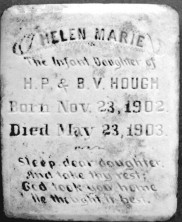 HELEN MARIE
The Infant Daughter of
H.P. & B.V. HOUGH
Born Nov. 23, 1902.
Died May 23, 1903.
Sleep dear daughter,
And take thy rest;
God took you home
He thought it best.